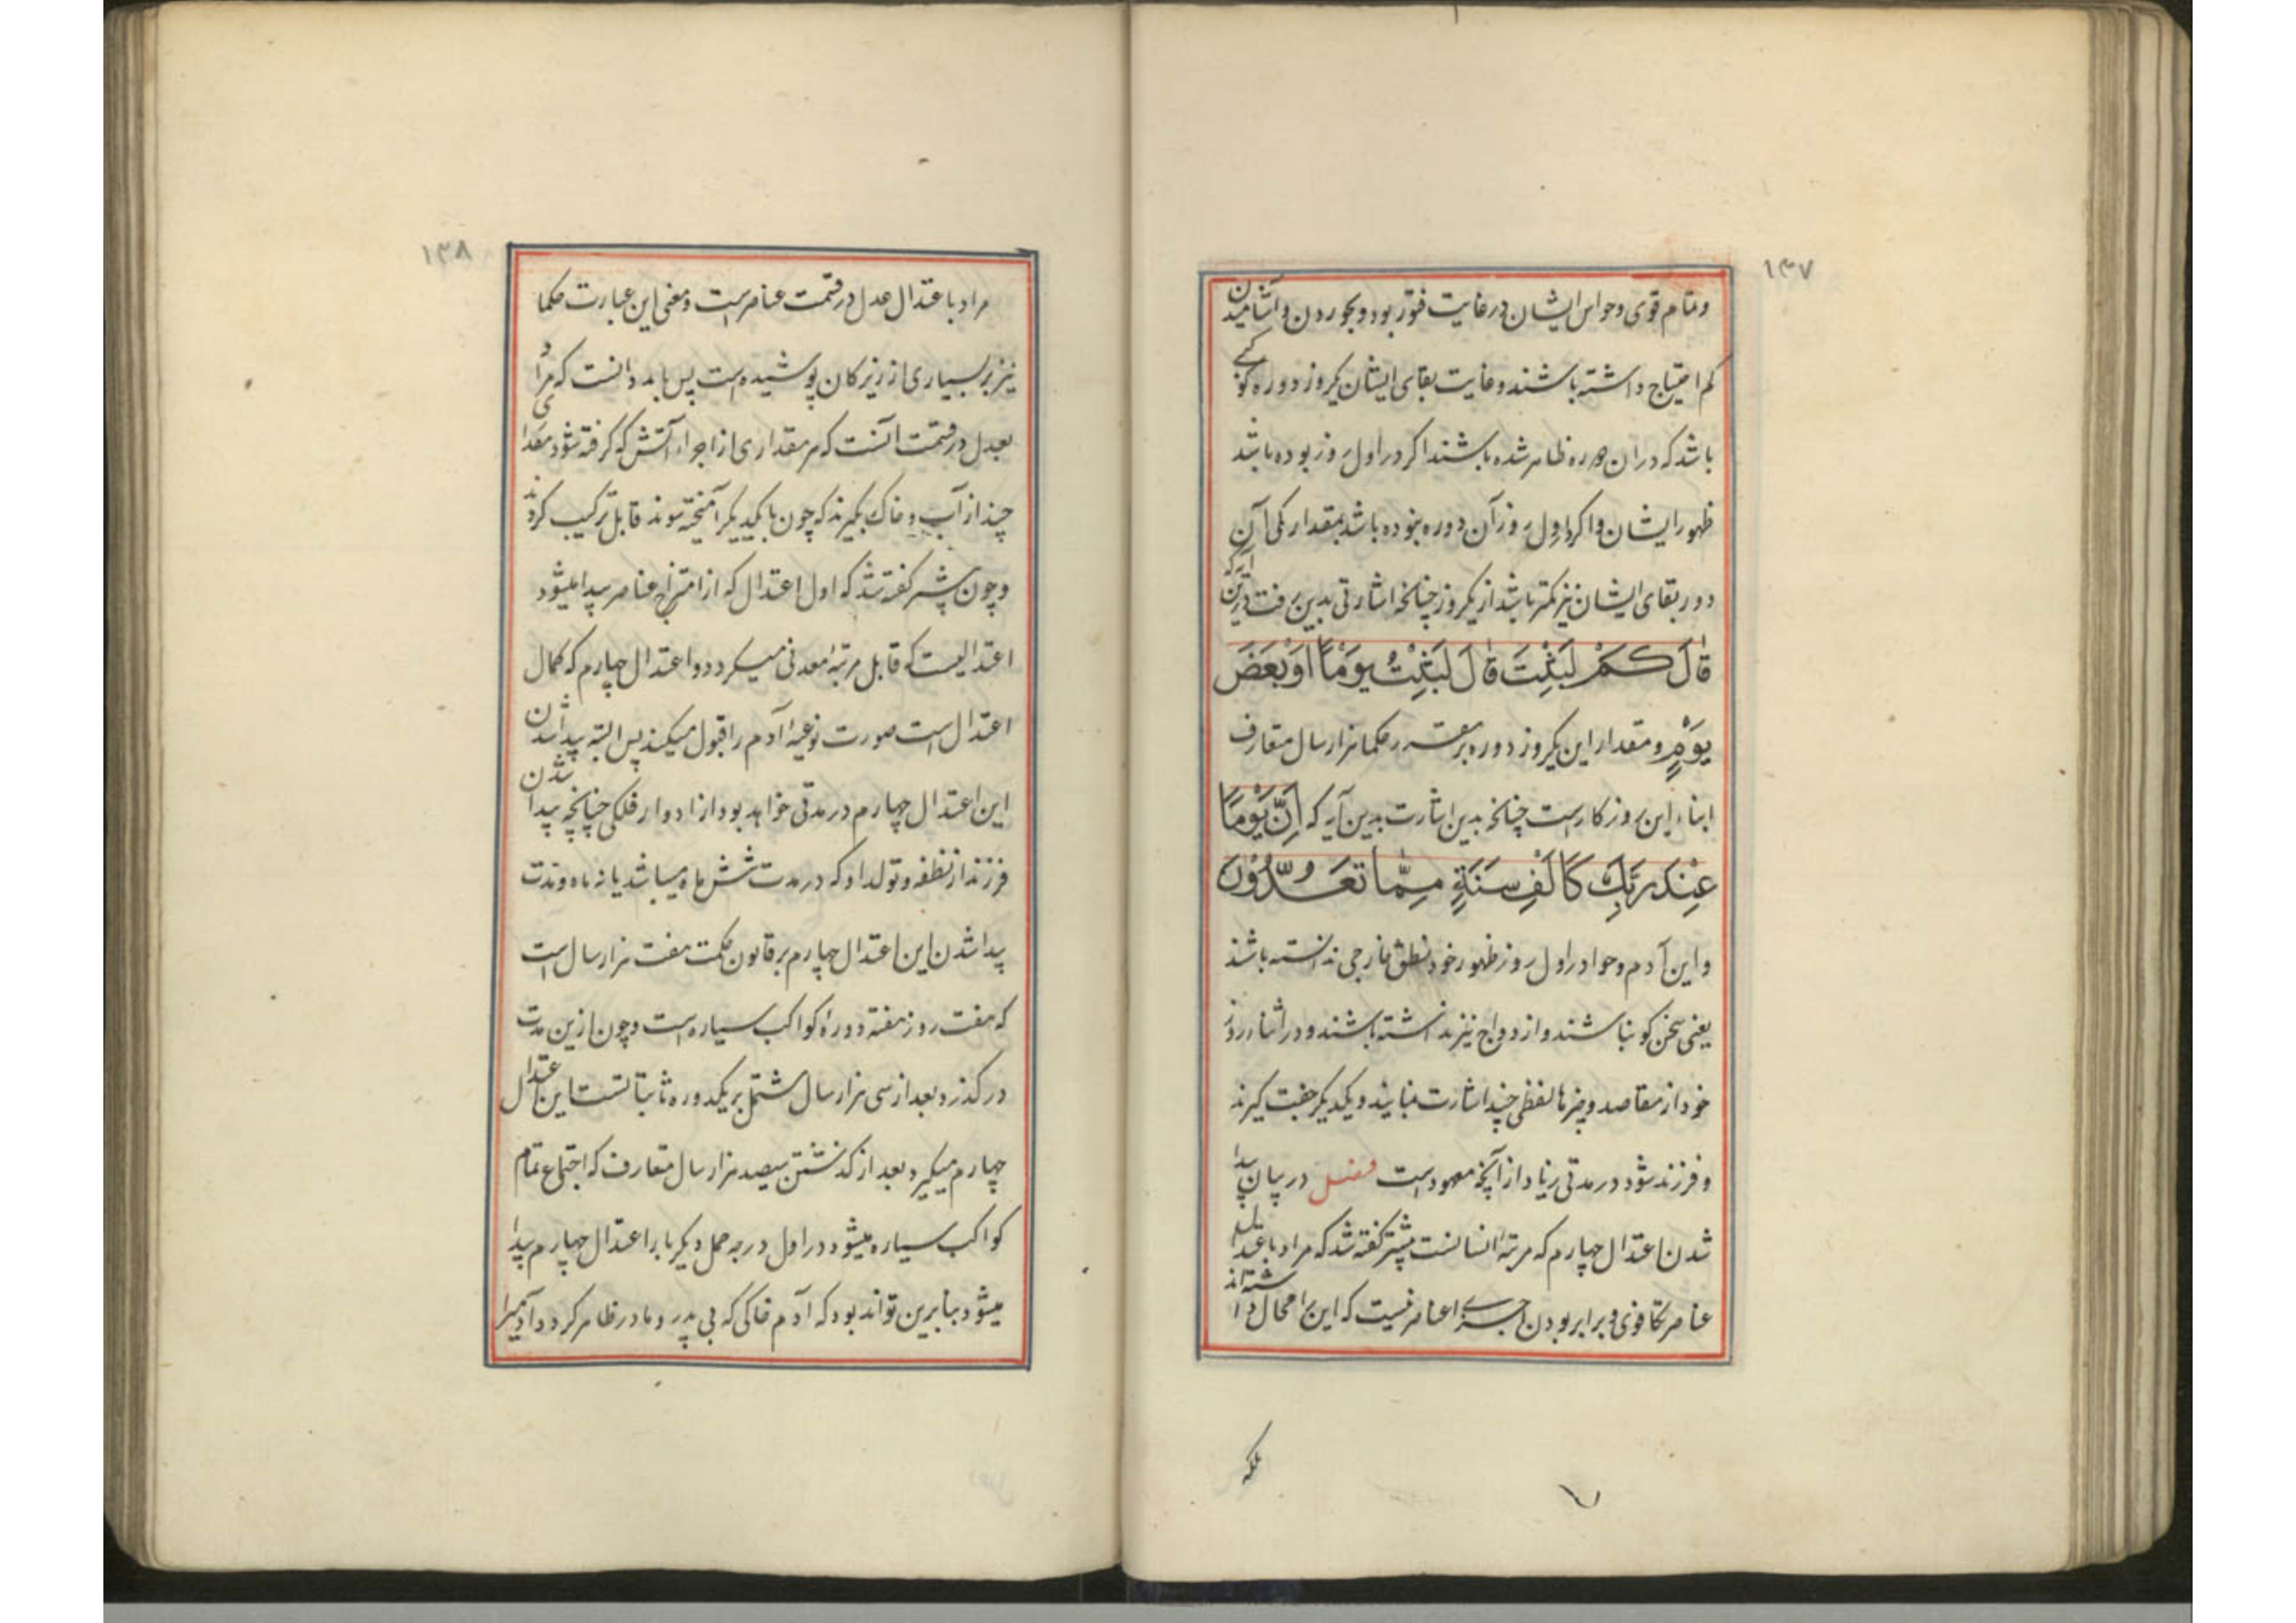 ۱۳۷
و تمام قوی و حواس ایشان در غایت فتور بود و بخوردن و آشامیدن
کم احتیاج داشته باشند و غایت بقای ایشان یکروز دوره کوکبی
باشد که در ان دوره ظاهر شده باشند اکر در اول روز بوده باشد
ظهور ایشان و اکر در اول روز آن دوره نبوده باشد بمقدار کمی آن
دور بقای ایشان نیز کمتر باشد از یکروز چنانچه اشارتی بدین رفت درین آیه که
قَالَ كَمْ لَبِثْتَ قَالَ لَبِثْتُ يَوْمًا اَوْ بَعْضَ
يَوْمٍ و مقدار این یکروز دوره بر مقرر حکما هزار سال متعارف
ابناء این روزکارست چنانچه بدین اشارت بدین آیه که اِنَّ يَوْمًا
عِنْدَ رَبِّكَ كَاَلْفِ سَنَةٍ مِمَّا تَعُدُّوْنَ
و این آدم و حوا در اول روز ظهور خود نطق خارجی ندانسته باشند
یعنی سخن کو نباشند و ازدواج نیز ندانسته باشند و در اثناء روز
خود از مقاصد و چیزها لفظی چند اشارت نمایند و یکدیکر جفت کیرند
و فرزند شود در مدتی زیاد از آنچه معهودست فصل در بیان پیدا
شدن اعتدال چهارم که مرتبهٔ انسانست پیشتر کفته شد که مراد باعتدال
عناصر تکافوی و برابر بودن اجزای عناصر نیست که این را محال داشته‌اند
بلکه
۱۳۸
مراد باعتدال عدل در قسمت عناصرست و معنی این عبارت حکما
نیز بر بسیاری از زیرکان پوشیده است پس باید دانست که مراد
بعدل در قسمت آنست که هر مقداری از اجزاء آتش که کرفته شود مقداری
چند از آب و خاک بکیرند که چون با یکدیکر آمیخته شوند قابل ترکیب کردند
و چون پیشتر کفته شد که اول اعتدال که از امتزاج عناصر پیدا میشود
اعتدالیست که قابل مرتبهٔ معدنی میکردد و اعتدال چهارم که کمال
اعتدال است صورت نوعیهٔ آدم را قبول میکند پس البته پیدا شدن
این اعتدال چهارم در مدتی خواهد بود از ادوار فلکی چنانچه پیدا شدن
فرزند از نطفه و تولد او که در مدت شش ماه میباشد یا نه ماه و مدت
پیدا شدن این اعتدال چهارم بر قانون حکمت هفت هزار سال است
که هفت روز هفته دورهٔ کواکب سیاره است و چون ازین مدت
در کذرد بعد از سی هزار سال مشتمل بر یکدوره ثابتاتست این اعتدال
چهارم میکیرد بعد از کذشتن سیصد هزار سال متعارف که اجتماع تمام
کواکب سیاره میشود در اول درجه حمل دیکر بار اعتدال چهارم پیدا
میشود بنابرین تواند بود که آدم خاکی که بی پدر و مادر ظاهر کردد آدمیرا